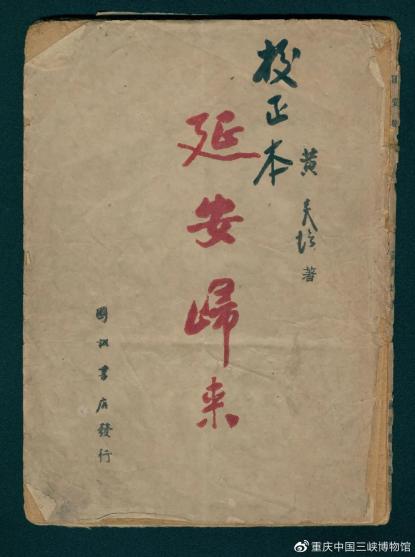 黄炎培 著
校正本
延安歸来
國訊書店發行
@重庆中国三峡博物馆